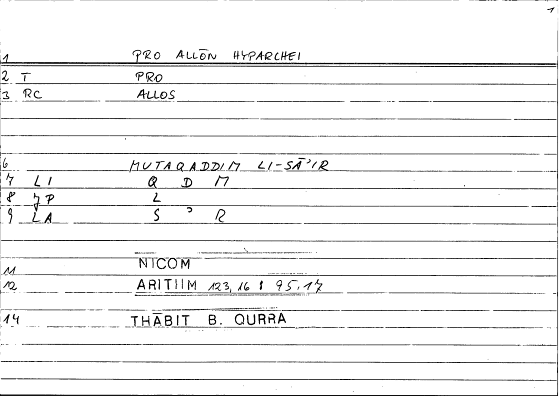 1
1 PRO ALLŌN HYPARCHEI
2 T PRO
3 RC ALLOS
6 MUTAQADDIM LI-SĀ'IR
7 LI Q D M
8 JP L
9 LA S ' R
11 NICOM
12 ARITIIM 123,16 : 95,17
14 THĀBIT B. QURRA